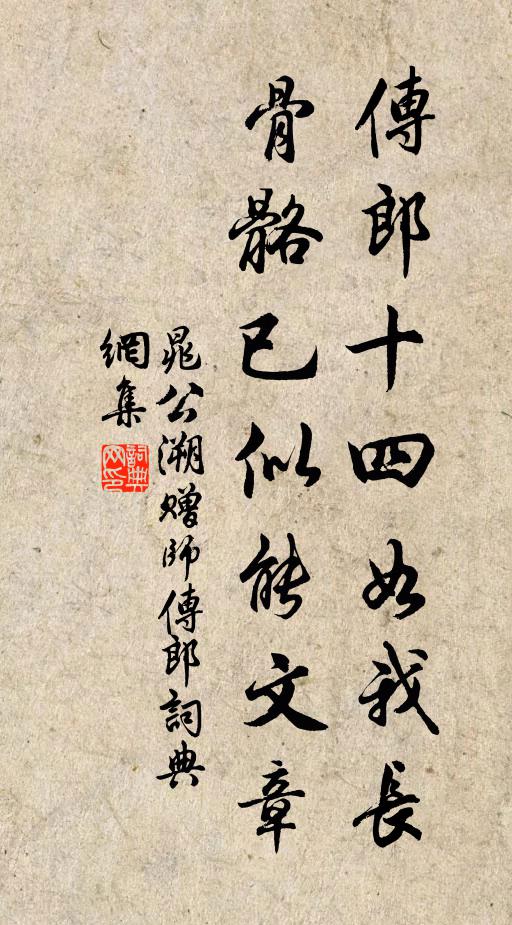 傳郎十四如我長
骨骼已似能文章
晁公溯贈師傳郎詞典
網集
詞典
网印